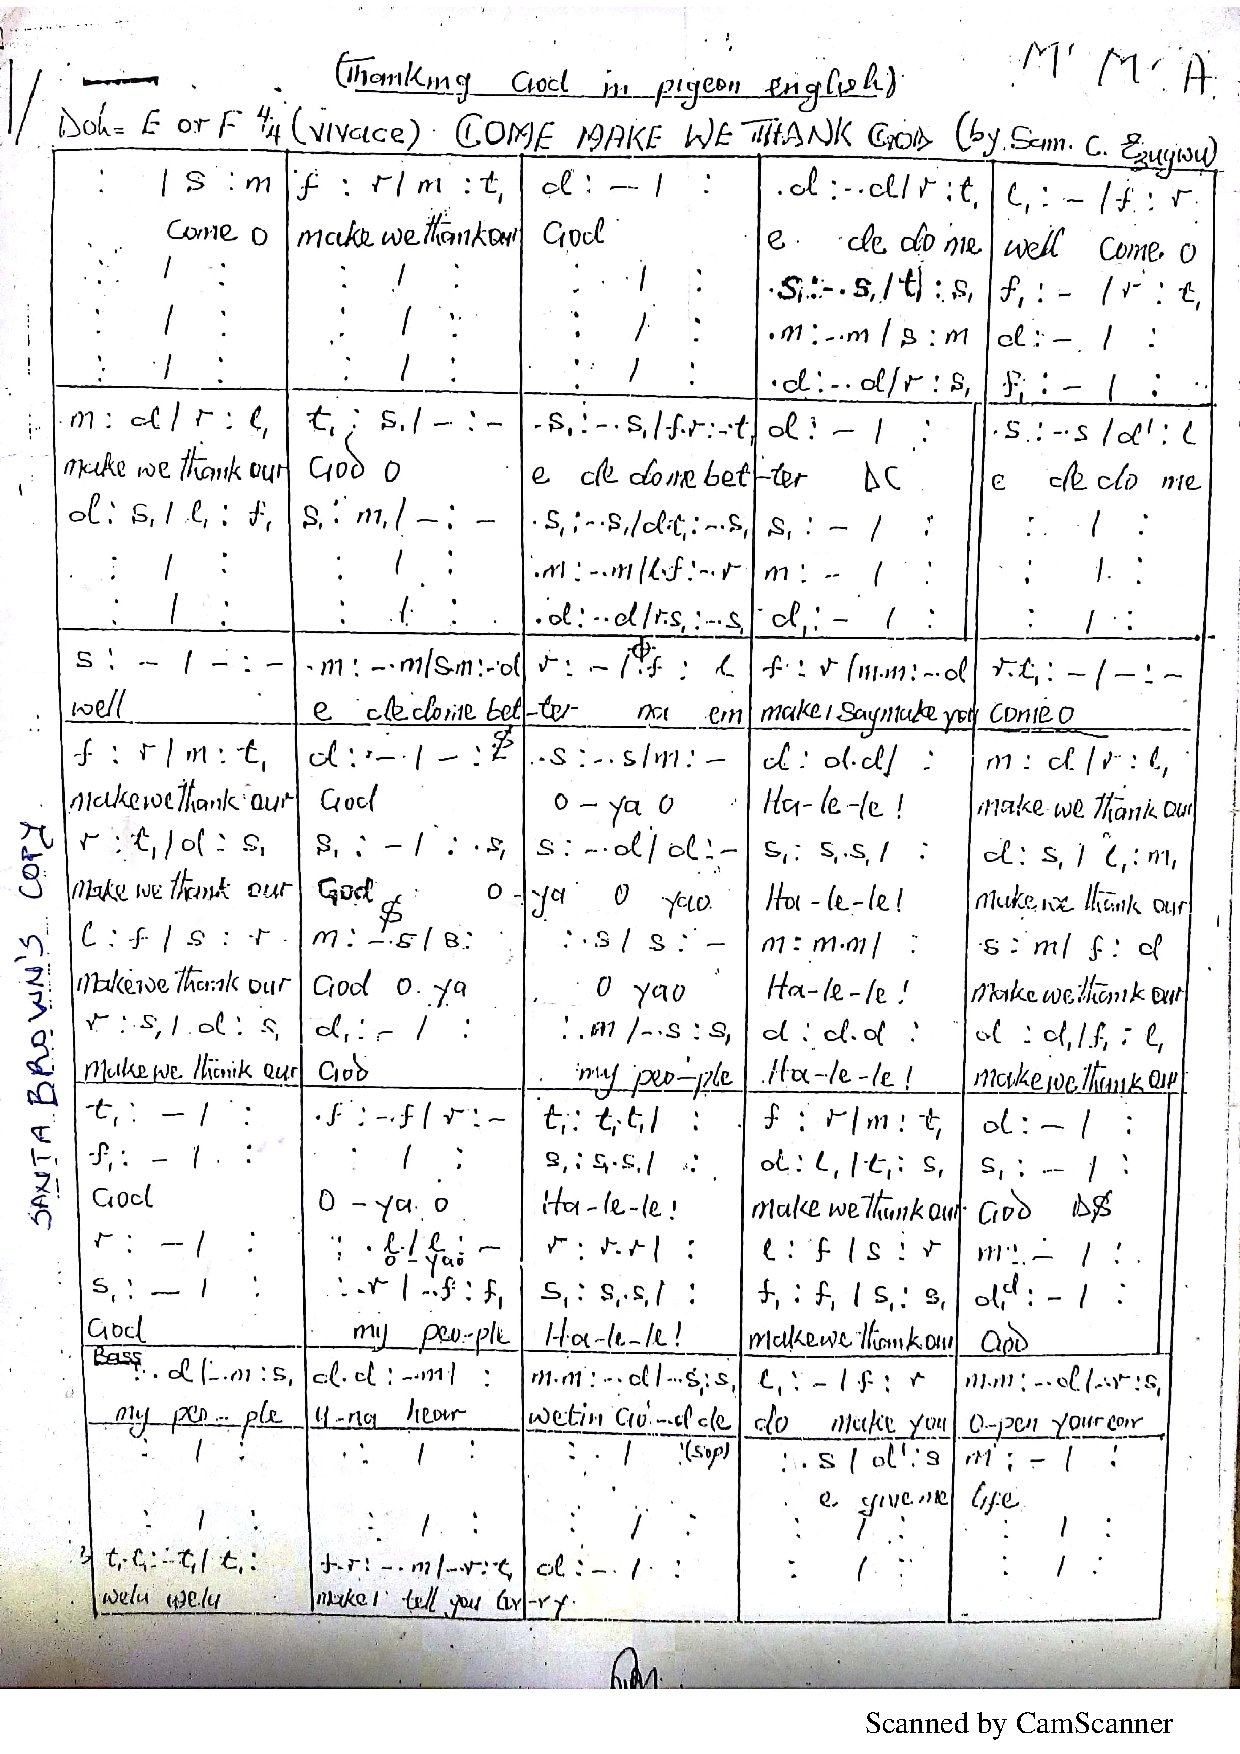 (Thanking God in pigeon english)
M. M. A
Doh= E or F 4/4 (vivace). COME MAKE WE THANK GOD (by. Sam. C. Ezugwu)
: / s : m | f : r / m : t, | d : – / : | .d : -.d / r : t, | l, : – / f : r
Come o | make we thank our | God | e de do me | well come o
: / : | : / : | : / : | .s, : -.s, / t, : s, | f, : – / r : t,
: / : | : / : | : / : | .m : -.m / s : m | d : – / :
: / : | : / : | : / : | .d : -.d / r : s, | f, : – / :
m : d / r : l, | t, : s, / – : – | .s, : -.s, / f.r : -.t, | d : – / : | .s : -.s / d' : l
make we thank our | God o | e de do me bet | -ter DC | e de do me
d : s, / l, : f, | s, : m, / – : – | .s, : -.s, / d.t, : -.s, | s, : – / : | : / :
: / : | : / : | .m : -.m / l.f : -.r | m : – / : | : / :
: / : | : / : | .d : -.d / r.s, : -.s, | d, : – / : | : / :
s : – / – : – | .m : -.m / s.m : -.d | r : – / f : l | f : r / m.m : -.d | r.t, : – / – : –
well | e de do me bet | -ter na em | make I say make you | come o
f : r / m : t, | d : – / – : $ | .s : -.s / m : – | d : d.d / : | m : d / r : l,
make we thank our | God | o – ya o | Ha-le-le! | make we thank our
r : t, / d : s, | s, : – / : .s, | s : -.d / d : – | s, : s,.s, / : | d : s, / l, : m,
make we thank our | God o- | ya o yao | Ha-le-le! | make we thank our
l : f / s : r | m : -.s / s : | : .s / s : – | m : m.m / : | s : m / f : d
make we thank our | God o ya | o yao | Ha-le-le! | make we thank our
r : s, / d : s, | d, : – / : | : .m / -.s : s, | d : d.d : | d : d, / f, : l,
make we thank our | God | my peo-ple | Ha-le-le! | make we thank our
t, : – / : | .f : -.f / r : – | t, : t,.t, / : | f : r / m : t, | d : – / :
f, : – / : | : / : | s, : s,.s, / : | d : l, / t, : s, | s, : – / :
God | o – ya o | Ha-le-le! | make we thank our | God D$
r : – / : | : .l / l : – | r : r.r / : | l : f / s : r | m : – / :
o – yao
s, : – / : | : .r / -.f : f, | s, : s,.s, / : | f, : f, / s, : s, | d,d : – / :
God | my peo-ple | Ha-le-le! | make we thank our | God
Bass
: .d / -.m : s, | d.d : -.m / : | m.m : -.d / -.s, : s, | l, : – / f : r | m.m : -.d / -.r : s,
my peo-ple | u-na hear | wetin Go-d de | do make you | o-pen your ear
: / : | : / : | : / : (sop) | : .s / d' : s | m' : – / :
e give me | life
: / : | : / : | : / : | : / : | : / :
t,.t, : -.t, / t, : | f.r : -.m / -.r : t, | d : – / : | : / : | : / :
welu welu | make I tell you | -ry.
SANTA BROWN'S COPY
Scanned by CamScanner